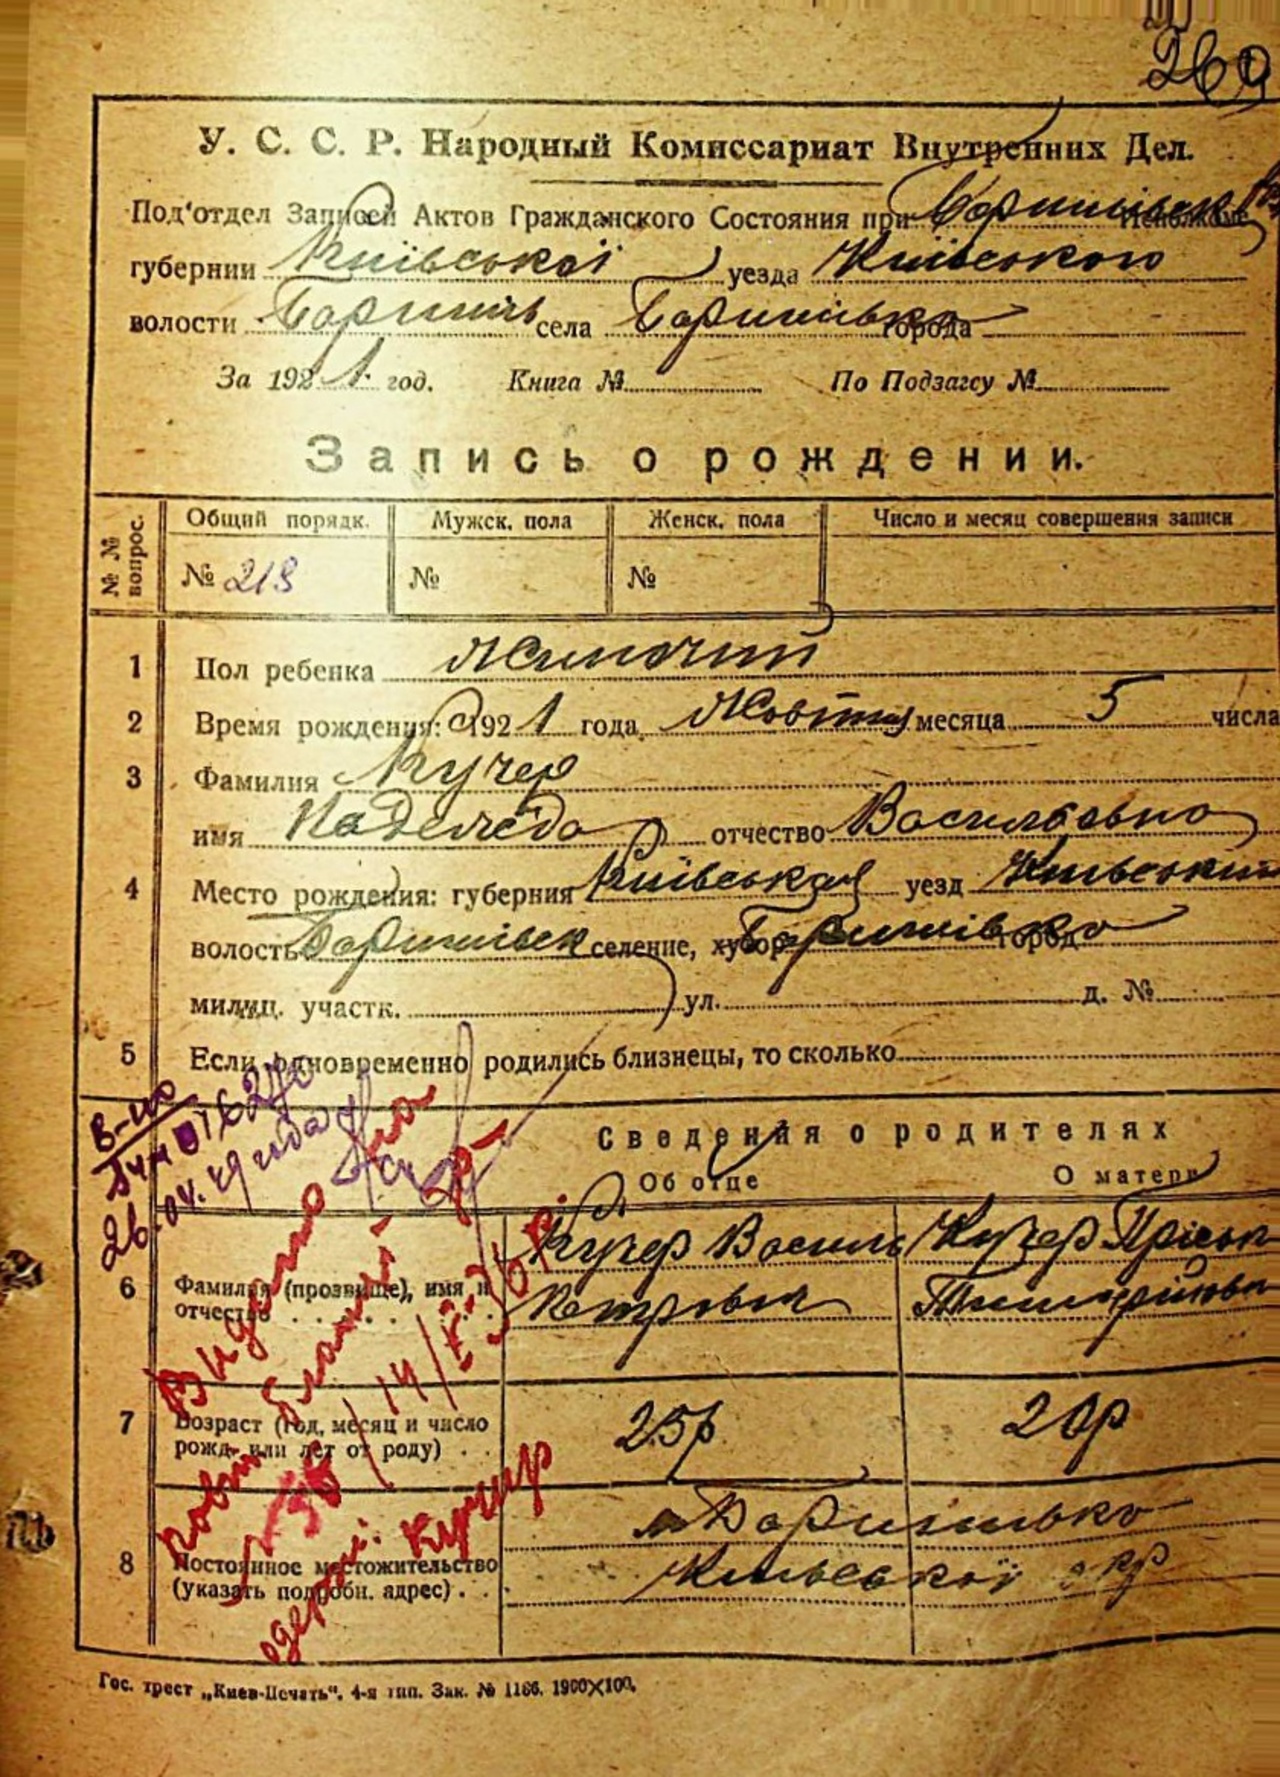 269
У. С. С. Р. Народный Комиссариат Внутренних Дел.
Под'отдел Записей Актов Гражданского Состояния при Исполкоме
губернии Київської уезда Київського
волости Баришів села Баришівка города
За 1921 год. Книга № По Подзагсу №
Запись о рождении.
№ № вопрос. Общий порядк. Мужск. пола Женск. пола Число и месяц совершения записи
№ 213 № №
1 Пол ребенка Жиночий
2 Время рождения: 1921 года Жовтня месяца 5 числа
3 Фамилия Кучер
имя Надежда отчество Васильевна
4 Место рождения: губерния Київська уезд Київський
волость Баришівск селение, хутор Баришівка город
милиц. участк. ул. д. №
5 Если одновременно родились близнецы, то сколько
Сведения о родителях
Об отце О матери
6 Фамилия (прозвище), имя и отчество Кучер Василь Петрович Кучер Пріська
7 Возраст (год, месяц и число рожд. или лет от роду) 25р 20р
8 Постоянное местожительство (указать подробн. адрес) м Баришівка
Київської окр
26.04.49 года
Видано на
Кучир
Гос. трест „Киев-Печать“. 4-я тип. Зак. № 1166. 1900×100.